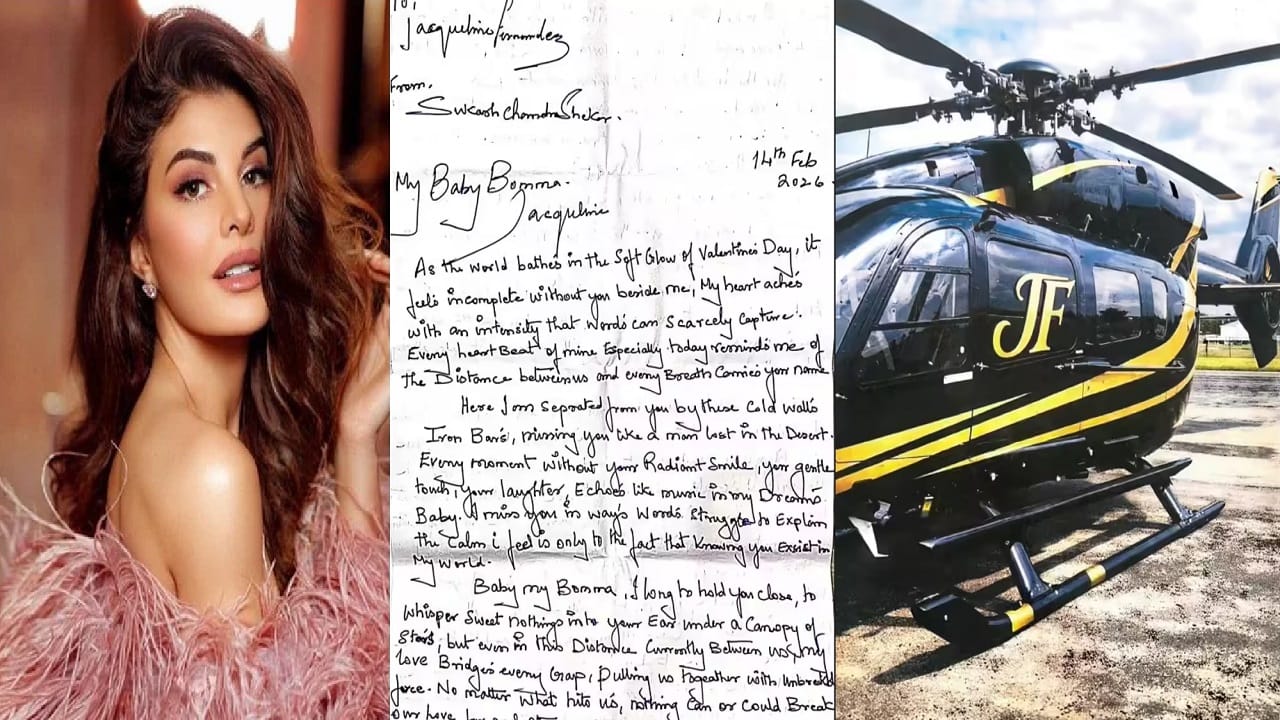 To,
Jacqueline Fernandez
From,
Sukash Chandra Shekar.
14th Feb
2026
My Baby Bomma.
Jacqueline
As the world bathe's in the Soft Glow of Valentine's Day, it
feel's incomplete without you beside me, My heart ache's
with an intensity that Word's can Scarcely Capture.
Every heart Beat of mine Especially today remind's me of
the Distance between us and every Breath Carries your name
Here I am seprated from you by these Cold walls
Iron Bar's, missing you like a man lost in the Desert.
Every moment without your Radiant Smile, your gentle
touch, your laughter, Echoes like music in my Dream's
Baby. I miss you in way's Word's Struggle to Explain
the Calm i feel is only to the fact that Knowing you Exsist in
My World.
Baby my Bomma, I long to hold you close, to
Whisper Sweet nothings into your Ear under a Canopy of
Star's, but even in this Distance Currently Between us, my
love Bridge's every Gap, Pulling us together with
force. No matter What hits us, nothing Can or Could Break
our love
JF